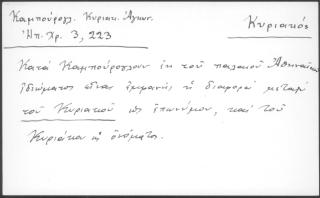 Καμπούρογλ. Κυριακ. Ἀγων.
Κυριακός
Ἠπ. Χρ. 3, 223
Κατὰ Καμπούρογλουν ἐκ τοῦ παλαιοῦ Ἀθηναϊκοῦ
ἰδιώματος εἶναι ἐμφανὴς ἡ διαφορὰ μεταξὺ
τοῦ Κυριακοῦ ὡς ἐπωνύμου, καὶ τοῦ
Κυριάκου ὡς ὀνόματος.